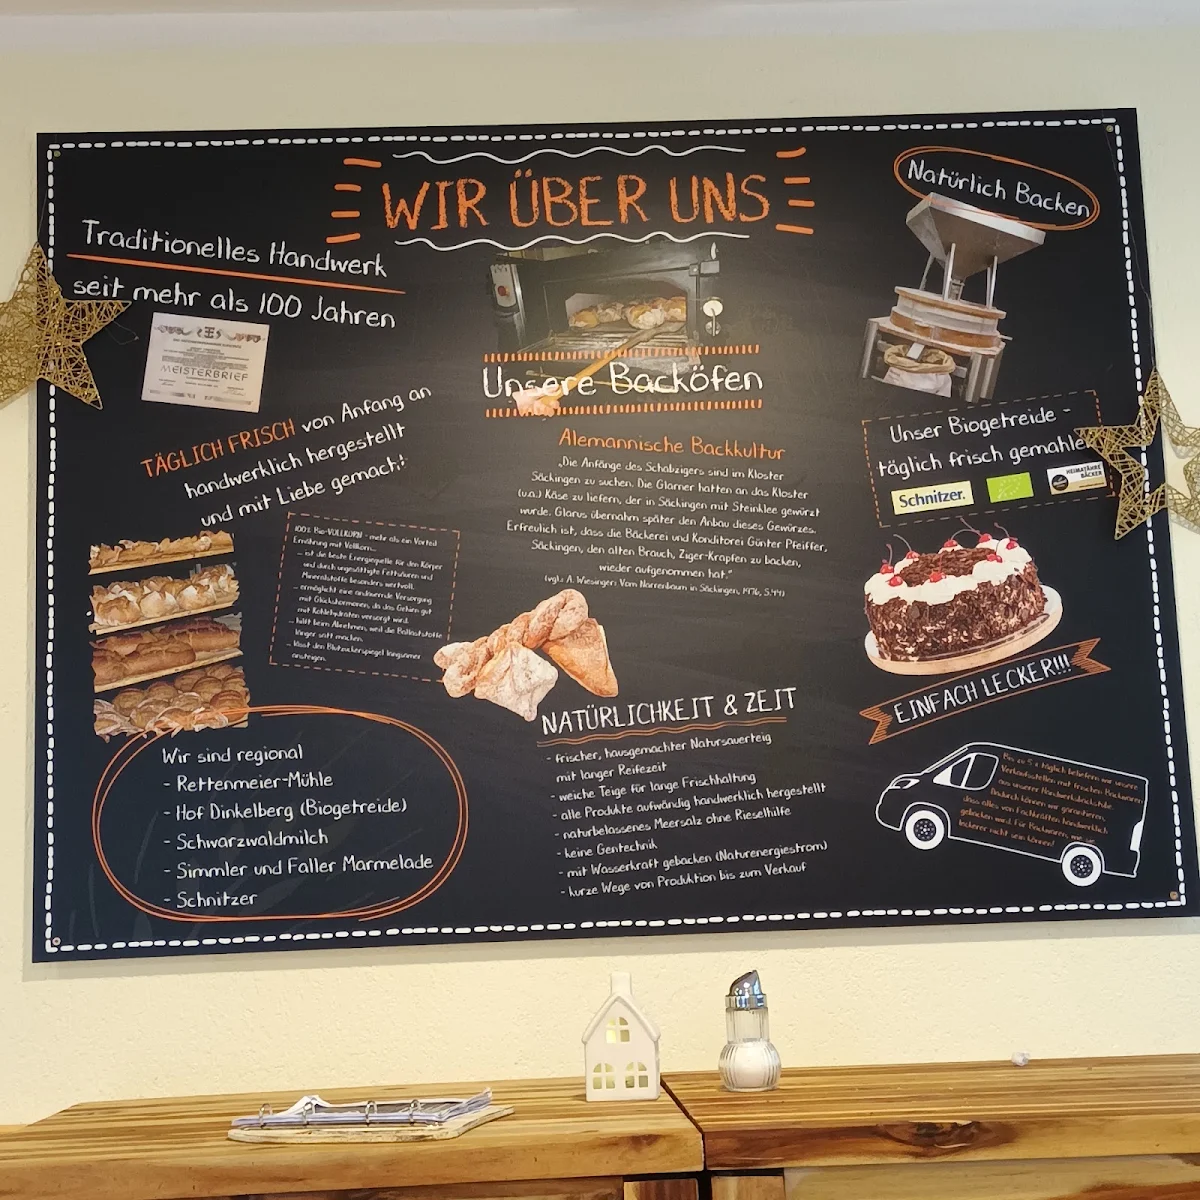 WIR ÜBER UNS
Traditionelles Handwerk
seit mehr als 100 Jahren
MEISTERBRIEF
TÄGLICH FRISCH von Anfang an
handwerklich hergestellt
und mit Liebe gemacht!
100% Bio-VOLLKORN - mehr als ein Vorteil
Ernährung mit Vollkorn...
- ist die beste Energiequelle für den Körper
und durch ungesättigte Fettsäuren und
Mineralstoffe besonders wertvoll.
- ermöglicht eine andauernde Versorgung
mit Glückshormonen, da das Gehirn gut
mit Kohlehydraten versorgt wird.
- hilft beim Abnehmen, weil die Ballaststoffe
länger satt machen.
- lässt den Blutzuckerspiegel langsamer
ansteigen.
Wir sind regional
- Rettenmeier-Mühle
- Hof Dinkelberg (Biogetreide)
- Schwarzwaldmilch
- Simmler und Faller Marmelade
- Schnitzer
Unsere Backöfen
Alemannische Backkultur
„Die Anfänge des Schabzigers sind im Kloster
Säckingen zu suchen. Die Glarner hatten an das Kloster
(u.a.) Käse zu liefern, der in Säckingen mit Steinklee gewürzt
wurde. Glarus übernahm später den Anbau dieses Gewürzes.
Erfreulich ist, dass die Bäckerei und Konditorei Günter Pfeiffer,
Säckingen, den alten Brauch, Ziger-Krapfen zu backen,
wieder aufgenommen hat."
(vgl.: A. Wiesinger: Vom Narrenbaum in Säckingen, 1976, S.44)
NATÜRLICHKEIT & ZEIT
- frischer, hausgemachter Natursauerteig
mit langer Reifezeit
- weiche Teige für lange Frischhaltung
- alle Produkte aufwändig handwerklich hergestellt
- naturbelassenes Meersalz ohne Rieselhilfe
- keine Gentechnik
- mit Wasserkraft gebacken (Naturenergiestrom)
- kurze Wege von Produktion bis zum Verkauf
Natürlich Backen
Unser Biogetreide -
täglich frisch gemahlen
Schnitzer.
HEIMATÄHRE
BÄCKER
EINFACH LECKER!!!
Bis zu 5 x täglich beliefern wir unsere
Verkaufsstellen mit frischen Backwaren
aus unserer Handwerksbackstube.
Dadurch können wir garantieren,
dass alles von Fachkräften handwerklich
gebacken wird. Für Backwaren, wie sie
leckerer nicht sein können!